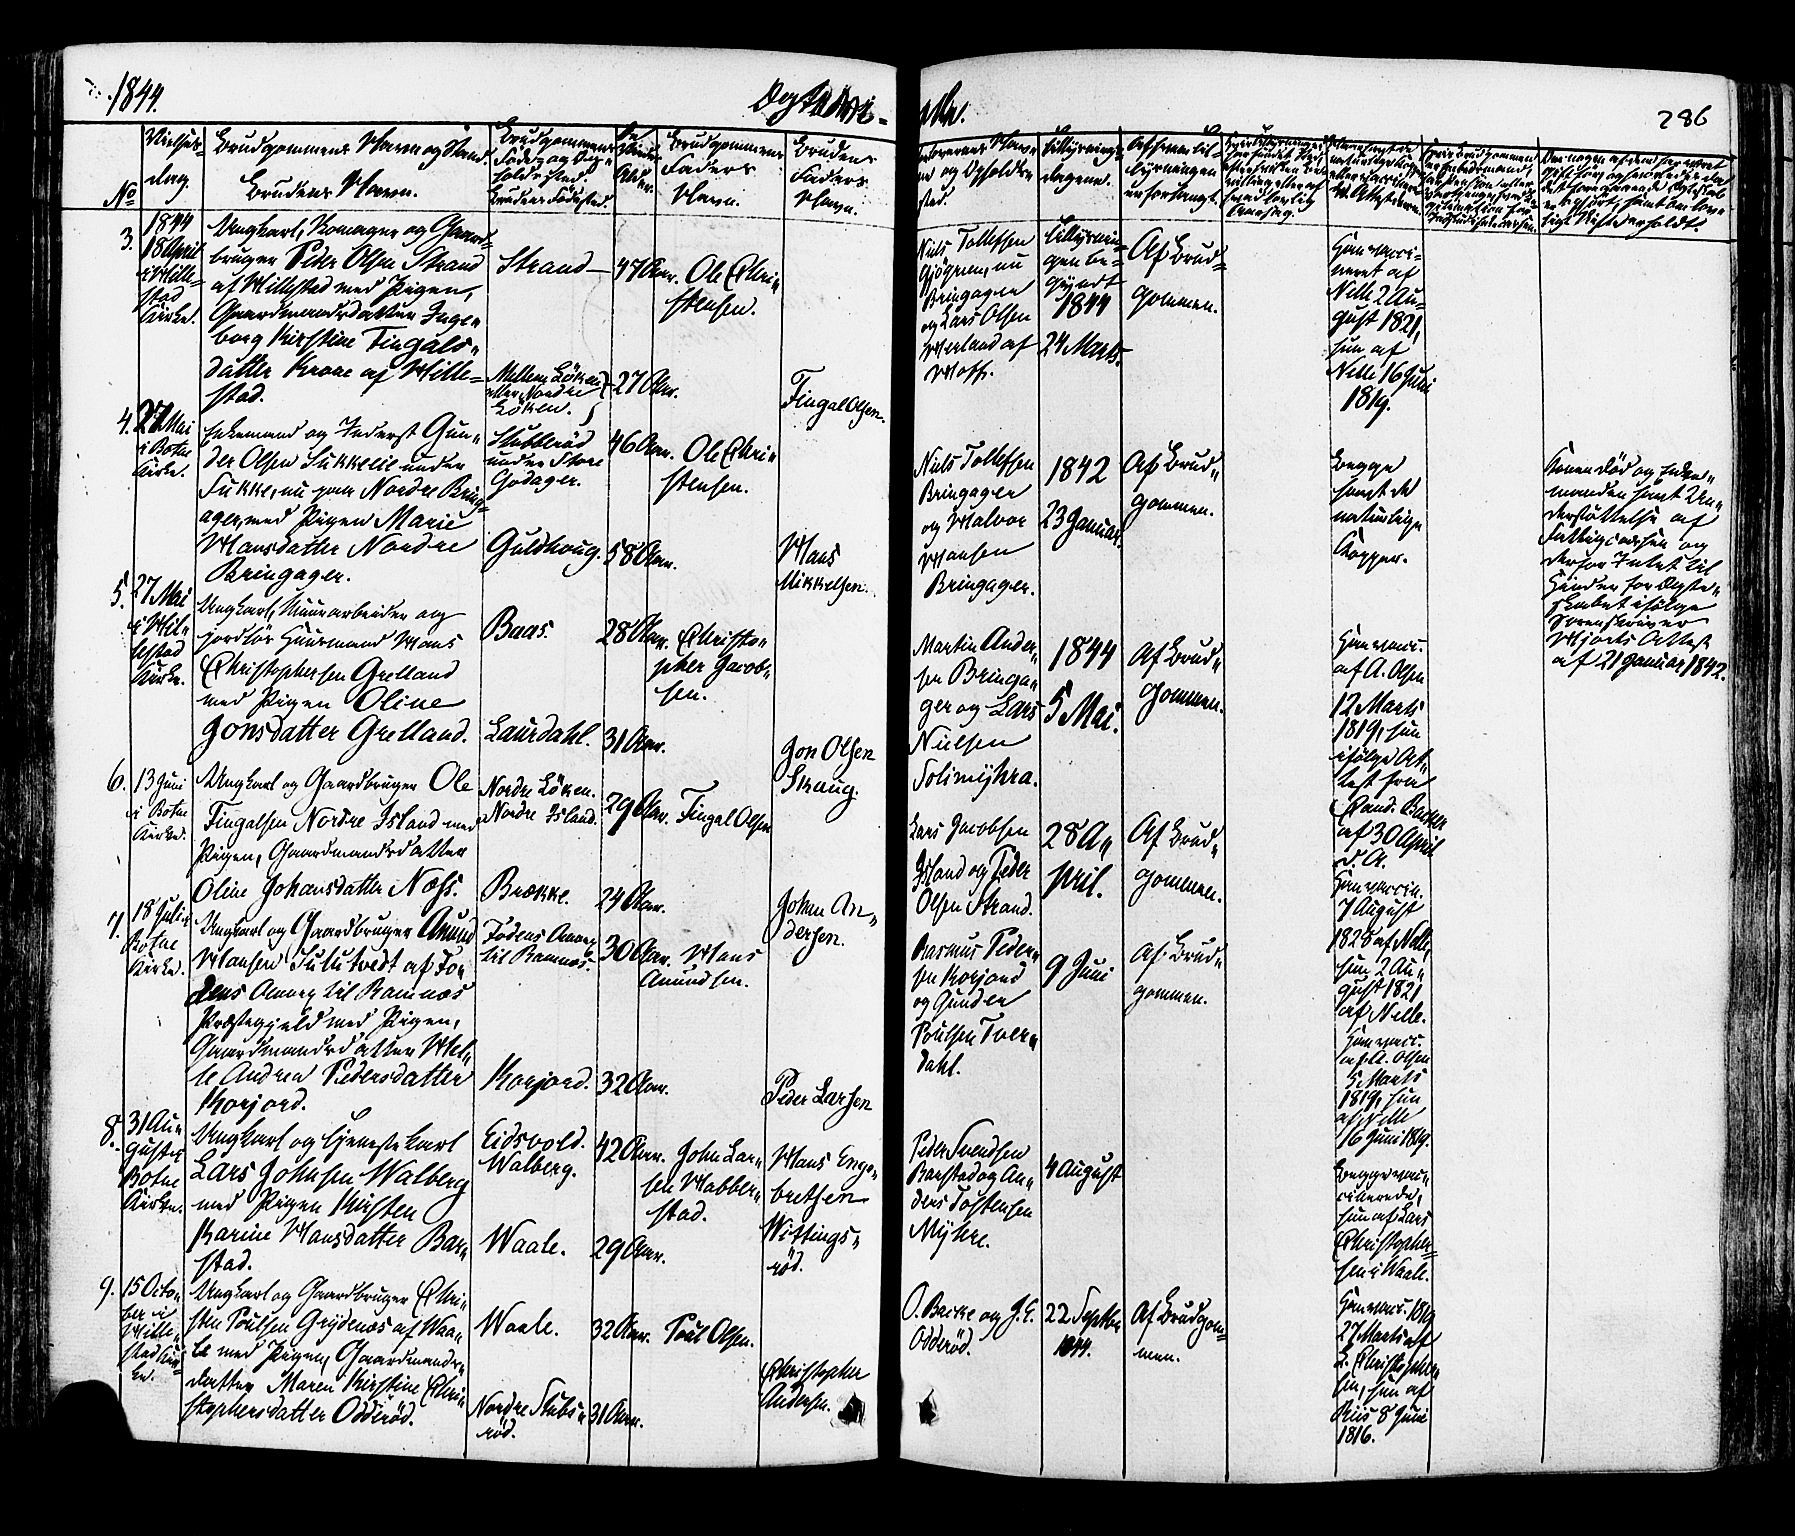 1844.
Ægtevi-
ede.
286
No
Vielses-
dag.
Brudgommens Navn og Stand.
Brudens Navn.
Brudgommens
Føde og Op-
holdssted.
Brudens Fødested.
Alder.
Brudgommens
Faders
Navn.
Brudens
Faders
Navn.
Forlovernes Nav-
ne og Opholds-
sted.
Tillysnings-
dagene.
Af hvem Til-
lysningen
er forlangt.
3.
1844
18 April
i Hille-
stad
Kirke.
Ungkarl, Komager og Gaard-
bruger Peder Olsen Strand
af Hillestad med Pigen,
Gaardmandsdatter Inge-
borg Kirstine Fingals-
datter Krone af Hille-
stad.
Strand
Mellem Løken
eller Nordre
Løken.
47 Aar.
27 Aar.
Ole Chri-
stensen.
Fingal Olsen.
Niels Tollefsen
nu
Bringager
og Lars Olsen
af
Hoff.
Tillysnin-
gen be-
gyndt
1844
24 Marts.
Af Brud-
gommen.
Han vacci-
neret af
Nelle 2 Au-
gust 1821,
hun af
Nelle 16 Juni
1819.
4.
27 Mai
i Botne
Kirke.
Enkemand og Inderst Gun-
der Olsen Sukkeeie under
Sukke, nu paa Nordre Bring-
ager, med Pigen Marie
Hansdatter Nordre
Bringager.
Stubberød
under Store
Godager.
Guldhoug.
46 Aar.
58 Aar.
Ole Chri-
stensen.
Hans
Mikkelsen.
Niels Tollefsen
Bringager
og Halvor
Hansen
Bringager.
1842
23 Januar.
Af Brud-
gommen.
Begge
havt de
naturlige
Kopper.
Konen død og Enke-
manden havt Un-
derstøttelse af
Fattigcassen og
derfor Intet til
Hinder for Ægte-
skabet ifølge
Sorenskriver
Hjorts Attest
af 21 Januar 1842.
5.
27 Mai
i Hil-
lestad
Kirke.
Ungkarl, Muurarbeider og
jordløs Huusmand Hans
Christophersen Grelland
med Pigen Oline
Jonsdatter Grelland.
Baas.
Laurdahl.
28 Aar.
31 Aar.
Christo-
pher Jacob-
sen.
Jon Olsen
Skaug.
Martin Ander-
sen Bringa-
ger og Lars
Nielsen
Solimyhra.
1844
5 Mai.
Af Brud-
gommen.
Han vacc.
af A. Olsen
12 Marts
1819, hun
ifølge At-
test fra
Cand. Backe
af 30 April
d. A.
6.
13 Juni
i Botne
Kirke.
Ungkarl og Gaardbruger Ole
Fingalsen Nordre Island med
Pigen, Gaardmandsdatter
Oline Johansdatter Næss.
Nordre Løken.
Nordre Island.
Brække.
29 Aar.
24 Aar.
Fingal Olsen
Johan An-
dersen.
Lars Jacobsen
Island og Peder
Olsen Strand.
28 A-
pril.
Af Brud-
gommen.
Han vaccin.
7 August
1828 af Nelle,
hun 2 Au-
gust 1821
af Nelle.
7.
18 Juli i
Botne
Kirke.
Ungkarl og Gaardbruger Amund
Hansen Sulutvedt af Fo-
dens Annex til Ramnæs
Præstegjeld med Pigen,
Gaardmandsdatter Hel-
le Andrea Pedersdatter
Korsjord.
Fodens Annex
til Ramnæs.
Korsjord.
30 Aar.
32 Aar.
Hans
Amundsen.
Peder Larsen
Rasmus Peder-
sen Korsjord
og Gunder
Poulsen Tver-
dahl.
9 Juni
Af Brud-
gommen.
Han vacc.
af A. Olsen
5 Marts
1819, hun
af Nelle
16 Juni 1819.
8.
31 Au-
gust i
Botne
Kirke.
Ungkarl og Tjenestekarl
Lars Johnsen Walberg
med Pigen Kirsten
Karine Hansdatter Bar-
stad.
Eidsvold.
Walberg.
Waale.
42 Aar.
29 Aar.
John Lar-
sen Habber-
stad.
Hans Enge-
bretsen
Wittings-
rød.
Peder Svendsen
Barstad og An-
ders Tostensen
Myhre.
4 August
Begge vac-
cinerede,
hun af Lars
Christopher-
sen i Waale.
9.
15 Octo-
ber i
Hille-
stad Kir-
ke.
Ungkarl og Gaardbruger Chri-
sten Poulsen Grydenæs af Waa-
le med Pigen, Gaardmands-
datter Maren Kirstine Chri-
stophersdatter Odderød.
Waale.
Nordre Stubs-
rød.
32 Aar.
31 Aar.
Poul Olsen.
Christopher
Andersen.
O. Backe og J. E.
Odderød.
22 Septbr
1844.
Af Brudgom-
men.
Han vacc. 1819
27 Marts af
L. Christopher-
sen, hun af
Riis 8 Juni
1816.